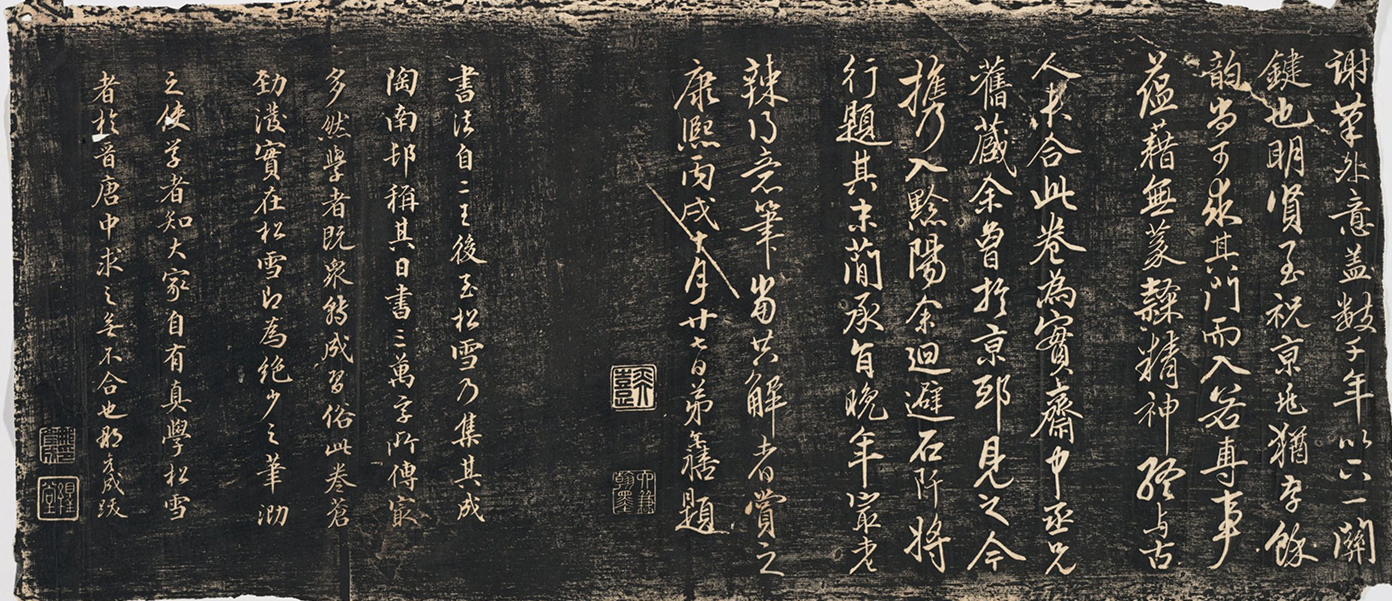 謝筆外意蓋數千年以六一關
鍵也明賢至祝京兆猶存餘
韵尚可求其門而入若專事
蘊藉無蒙隸精神終与古
人未合此卷為實齋中丞兄
舊藏余曾於京邸見之今
攜入黔陽余迴避石阡將
行題其末簡承旨晚年最老
辣得意筆當共解者賞之
康熙丙戌十月廿七日弟善題
書法自二王後至松雪乃集其成
陶南邨稱其日書三萬字所傳最
多然學者既眾轉成習俗此卷蒼
勁濃實在松雪已為絕少之筆泐
之使學者知大家自有真學松雪
者於晉唐中求之無不合也